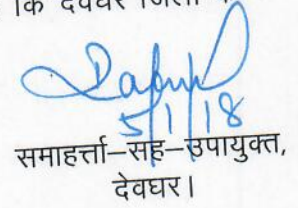 कि देवघर जिला
5/1/18
समाहर्त्ता–सह–उपायुक्त,
देवघर।